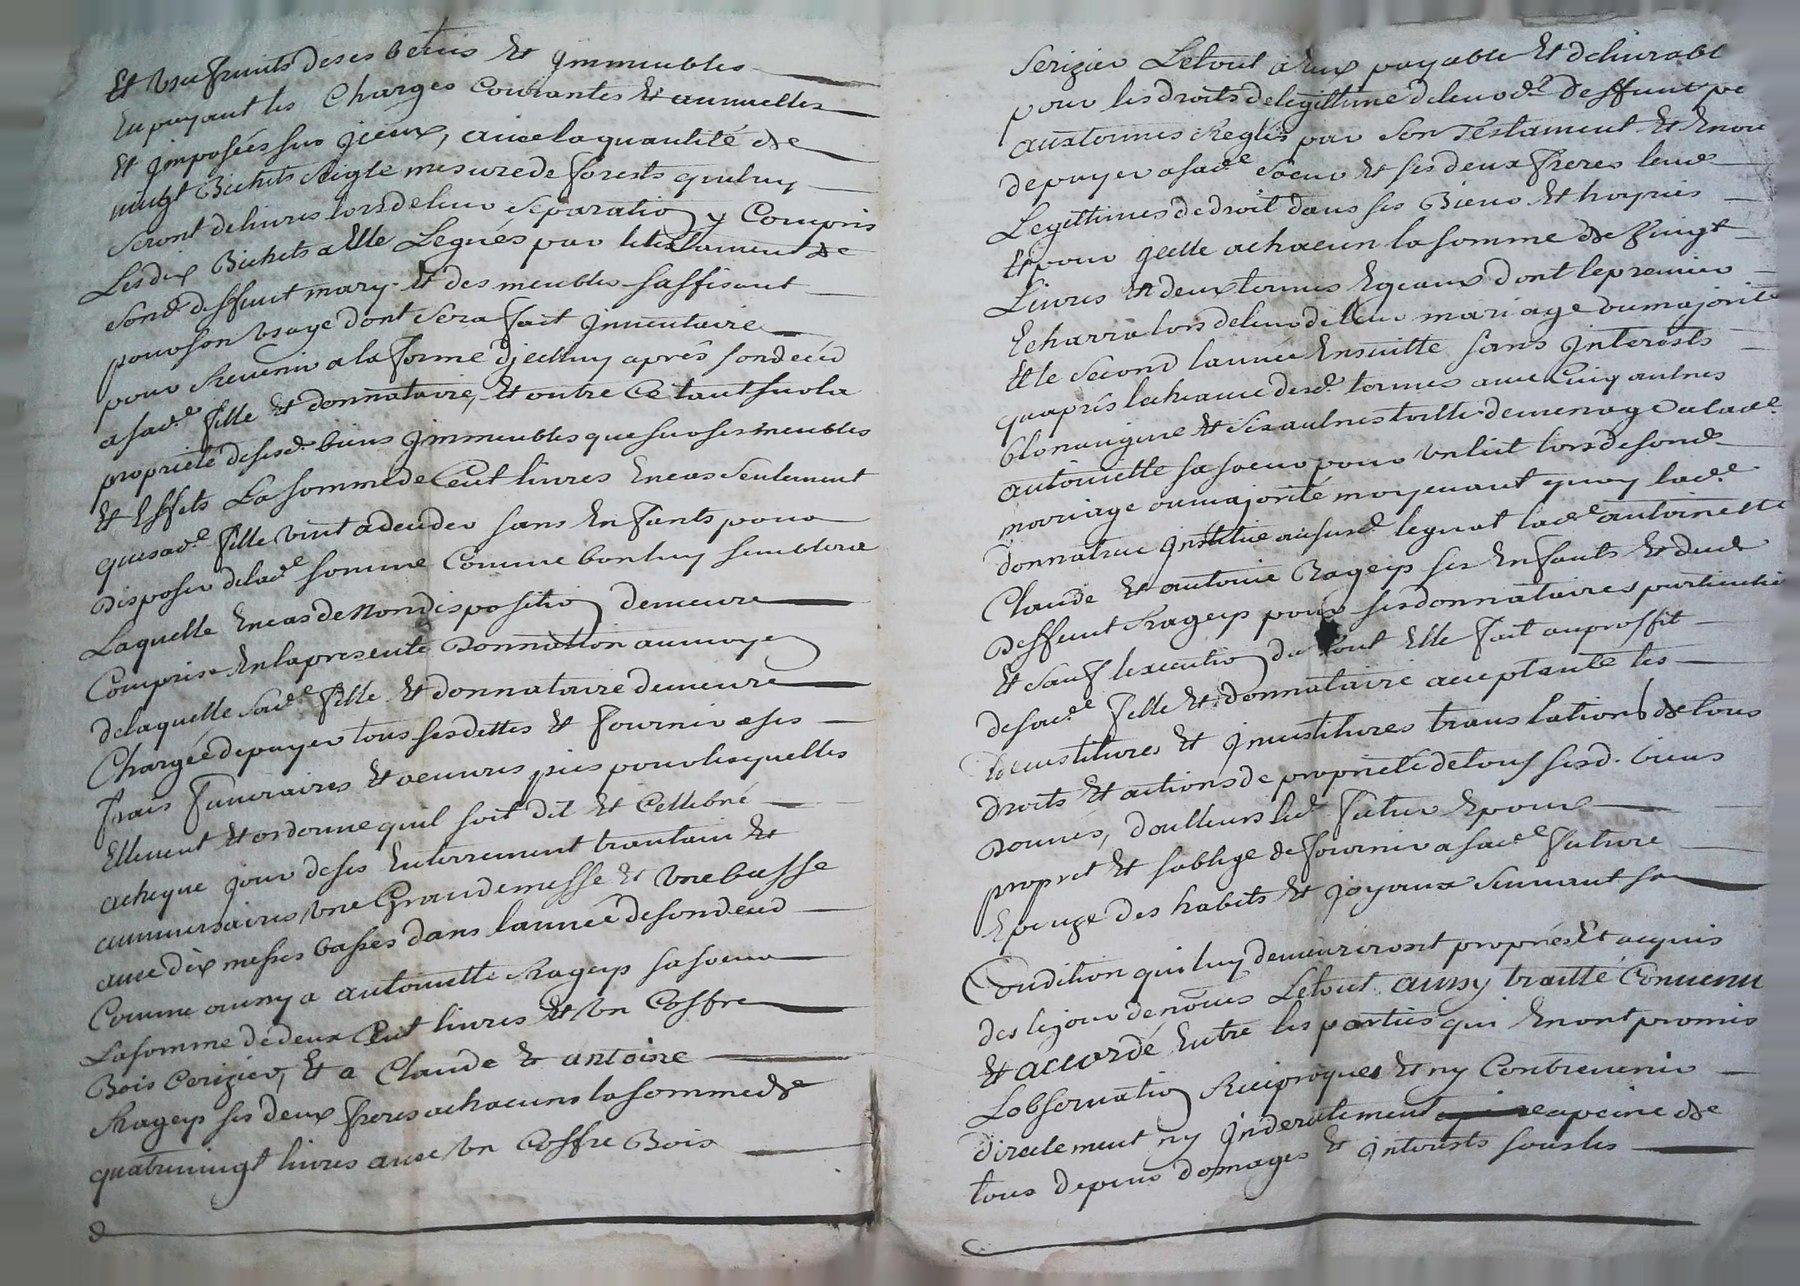 Et usufruits de ses betiis Et jmmeubles
En payant les Charges Courantes Et annuelles
Et jmposées sur jceux, avec la quantité de
vingt Bichets seigle mesure de forests qui luy
seront delivres lors de leur separation y Compris
Les dix Bichets a Elle Legués par le testament de
son d. deffunt mary Et des meubles saffisant
pour son usage dont sera fait jnventaire
pour Revenir a la forme d'jcelluy aprés son deced
a sa de. fille Et donnataire, Et outre Ce tant sur la
proprieté de ses d. biens jmmeubles que sur ses meubles
Et Effets La somme de Cent livres En cas seulement
que sa de. fille vint a deceder sans Enfants pour
Disposer de la de. somme Comme bon luy semblera
Laquelle En cas de Non disposition demeure
Comprise En la presente Donnation au moyen
de laquelle sa de. fille Et donnataire demeure
Chargée de payer tous ses dettes Et fournir a ses
frais funeraires Et oeuvres pies pour lesquelles
Elle veut Et ordonne quil soit dit Et Cellebré
acheque jour de ses Enterrement trantain Et
anniversaires une Grande messe Et Une basse
avec dix messes basses dans lannée de son deced
Comme aussy a antoinette Rageys sa soeur
La somme de deux Cent livres Et Un Coffre
Bois Cerizier, Et a Claude Et antoine
Rageys ses deux freres a chacuns la somme de
quatrevingt livres avec Un Coffre Bois
Serizier Le tout a Eux payable Et delivrabl
pour les droits de legittime de leur d. deffunt pe
aux termes Reglés par son Testament Et Encre
de payer a sa de. soeur Et ses deux freres leurs
Legitimes de droit dans ses Biens Et hoyries
Et pour jcelle a chacun la somme de Vingt
Livres En deux termes Egeaux dont le premier
Echarra lors de leur d. mariage ou majorité
Et le second lannée Ensuitte sans jnterests
quaprés lecheance des d. termes avec Cinq aulnes
Et Six aulnes toille de menage a la de.
antoinette sa soeur pour un lict lors de son d.
mariage ou majorité moyenant quoy la de.
donnatrice jnstitue au sur d. leguat la de. antoinette
Claude Et antoine Rageys ses Enfants Et du d.
deffunt Rageys pour ses donnataires particulie
Et sauf lexecution du tout Elle fait au proffit
de sa de. fille Et donnataire acceptante les
Devestitures Et jnvestitures translations de tous
droits Et actions de proprieté de tous ses d. biens
Donnés, d'ailleurs le d. futur Epoux
promet Et soblige de fournir a sa de. future
Epouze des habits Et joyaux suivant sa
Condition qui luy demeureront propres Et acquis
des le jour de nôces Le tout aussy traitté Convenu
Et accordé Entre les parties qui En ont promis
Lobservation Reciproques Et ny Contrevenir
directement ny jnderectement a peine de
tous depens domages Et jnterests sous les